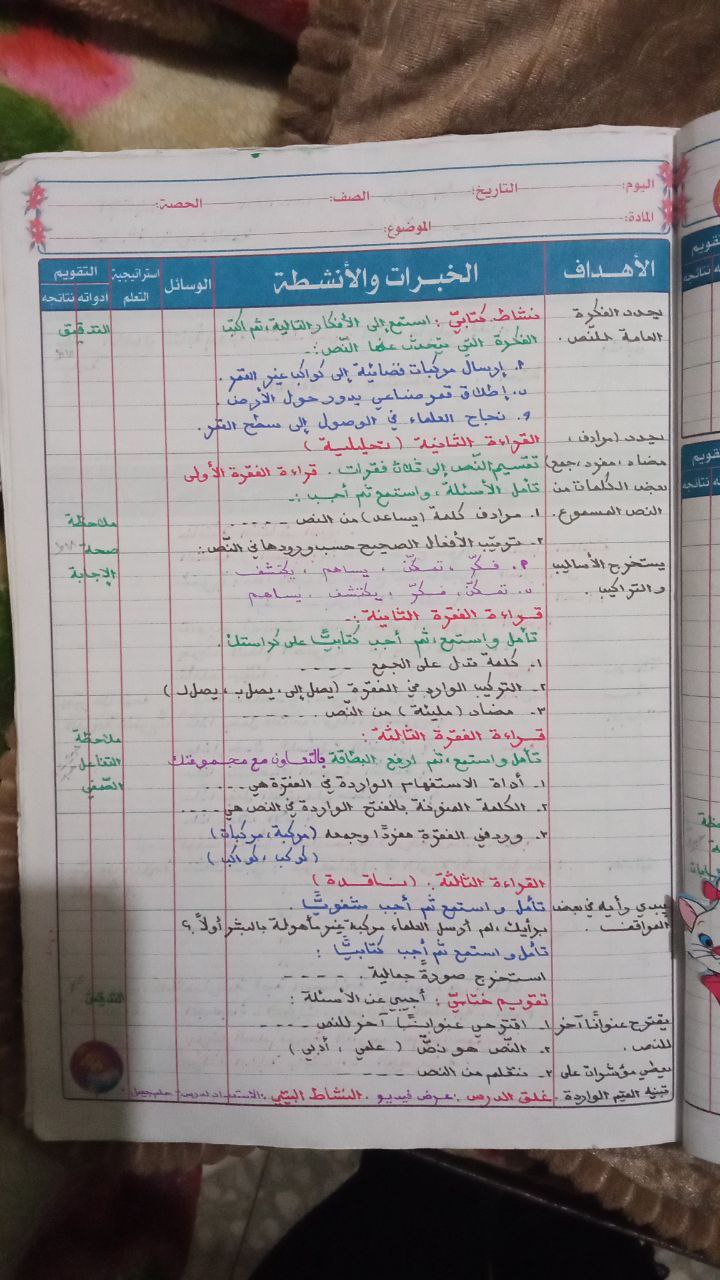 اليوم: التاريخ: الصف: الحصة:
المادة: الموضوع:
الأهداف الخبرات والأنشطة الوسائل استراتيجية التعلم التقويم
ادواته نتائجه
يحدد الفكرة نشاط كتابيّ: استمع إلى الأفكار التالية، ثم اكتب التدقيق
العامة للنص. الفكرة التي يتحدث عنها النّص:-
أ. إرسال مركبات فضائية إلى كواكب غير القمر.
ب. إطلاق قمر صناعي يدور حول الأرض.
ج. نجاح العلماء في الوصول إلى سطح القمر.
يحدد (مرادف، القراءة الثانية (تحليلية)
مضاد، مفرد، جمع) تقسيم النّص إلى ثلاث فقرات. قراءة الفقرة الأولى
بعض الكلمات من تأمل الأسئلة، واستمع ثم أجب:-
النص المسموع. ١. مرادف كلمة (يساعد) من النص ----- ملاحظة
٢. ترتيب الأفعال الصحيح حسب ورودها في النّص: صحة
يستخرج الأساليب أ. فكّر، تمكّن، يساهم، يكتشف الإجابة
والتراكيب. ب. تمكّن، فكّر، يكتشف، يساهم
قراءة الفقرة الثانية:-
تأمل واستمع، ثم أجب كتابيًّا على كراستك.
١. كلمة تدل على الجمع ----
٢. التركيب الوارد في الفقرة (يصل إلى، يصل بـ، يصل لـ)
٣. مضاد (مليئة) من النّص -----
قراءة الفقرة الثالثة: ملاحظة
تأمل واستمع، ثم ارفع البطاقة بالتعاون مع مجموعتك التفاعل
١. أداة الاستفهام الواردة في الفقرة هي ---- الصّفي
٢. الكلمة المنونة بالفتح الواردة في النص هي ----
٣. ورد في الفقرة مفردًا وجمعه (مركبة، مركبات)
(كوكب، كواكب)
القراءة الثالثة: (ناقدة)
يبدي رأيه في بعض تأمل واستمع ثم أجب شفويًّا.
المواقف. برأيك، لم أرسل العلماء مركبة غير مأهولة بالبشر أولاً؟
تأمل واستمع ثم أجب كتابيًّا:
استخرج صورةً جمالية. ----
تقويم ختاميّ: أجيبي عن الأسئلة: التدقيق
يقترح عنوانًا آخر ١. اقترحي عنوانًا آخر للنص ----
للنص. ٢. النّص هو نصّ (علمي، أدبي)
يعطي مؤشرات على ٣. نتعلم من النص ----
تبنيه القيم الواردة. غلق الدرس: عرض فيديو. النشاط البيتي: الاستعداد لدرس